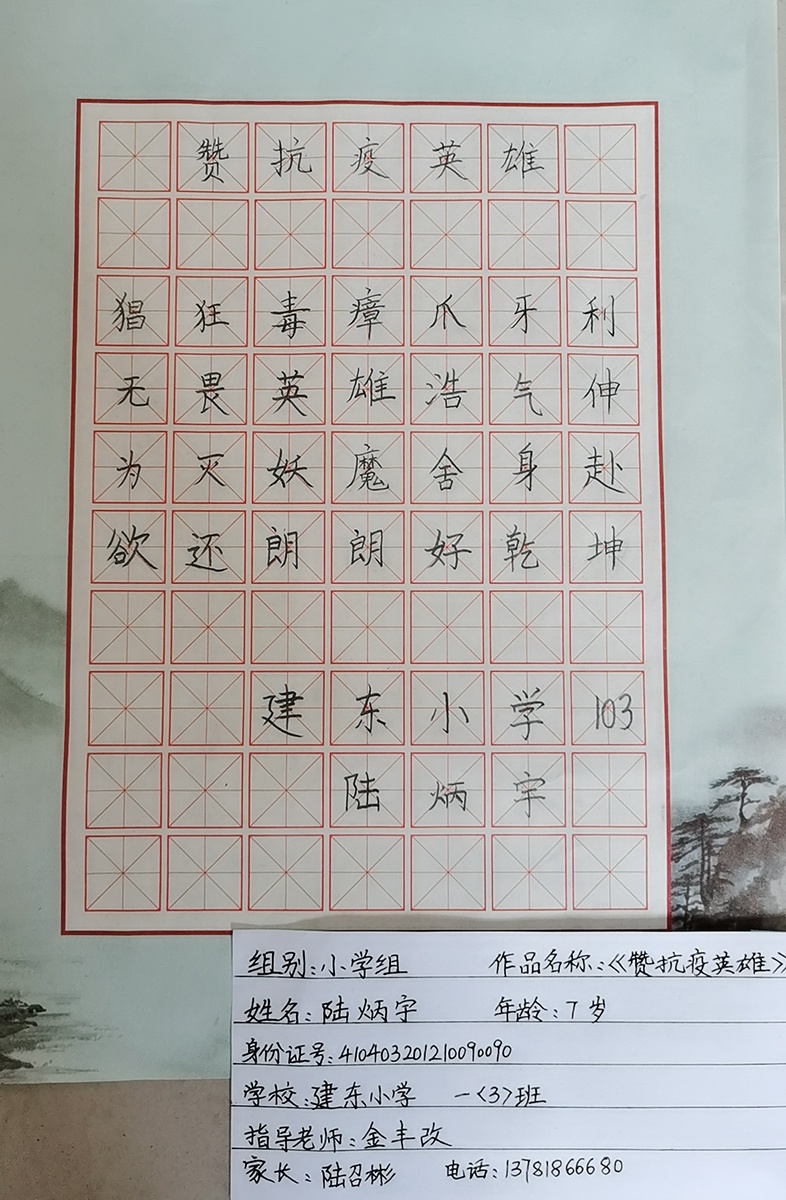 赞抗疫英雄
猖狂毒瘴爪牙利
无畏英雄浩气伸
为灭妖魔舍身赴
欲还朗朗好乾坤
建东小学103
陆炳宇
组别:小学组 作品名称:《赞抗疫英雄》
姓名:陆炳宇 年龄:7岁
身份证号:410403201210090090
学校:建东小学 一<3>班
指导老师:金丰改
家长:陆召彬 电话:13781866680